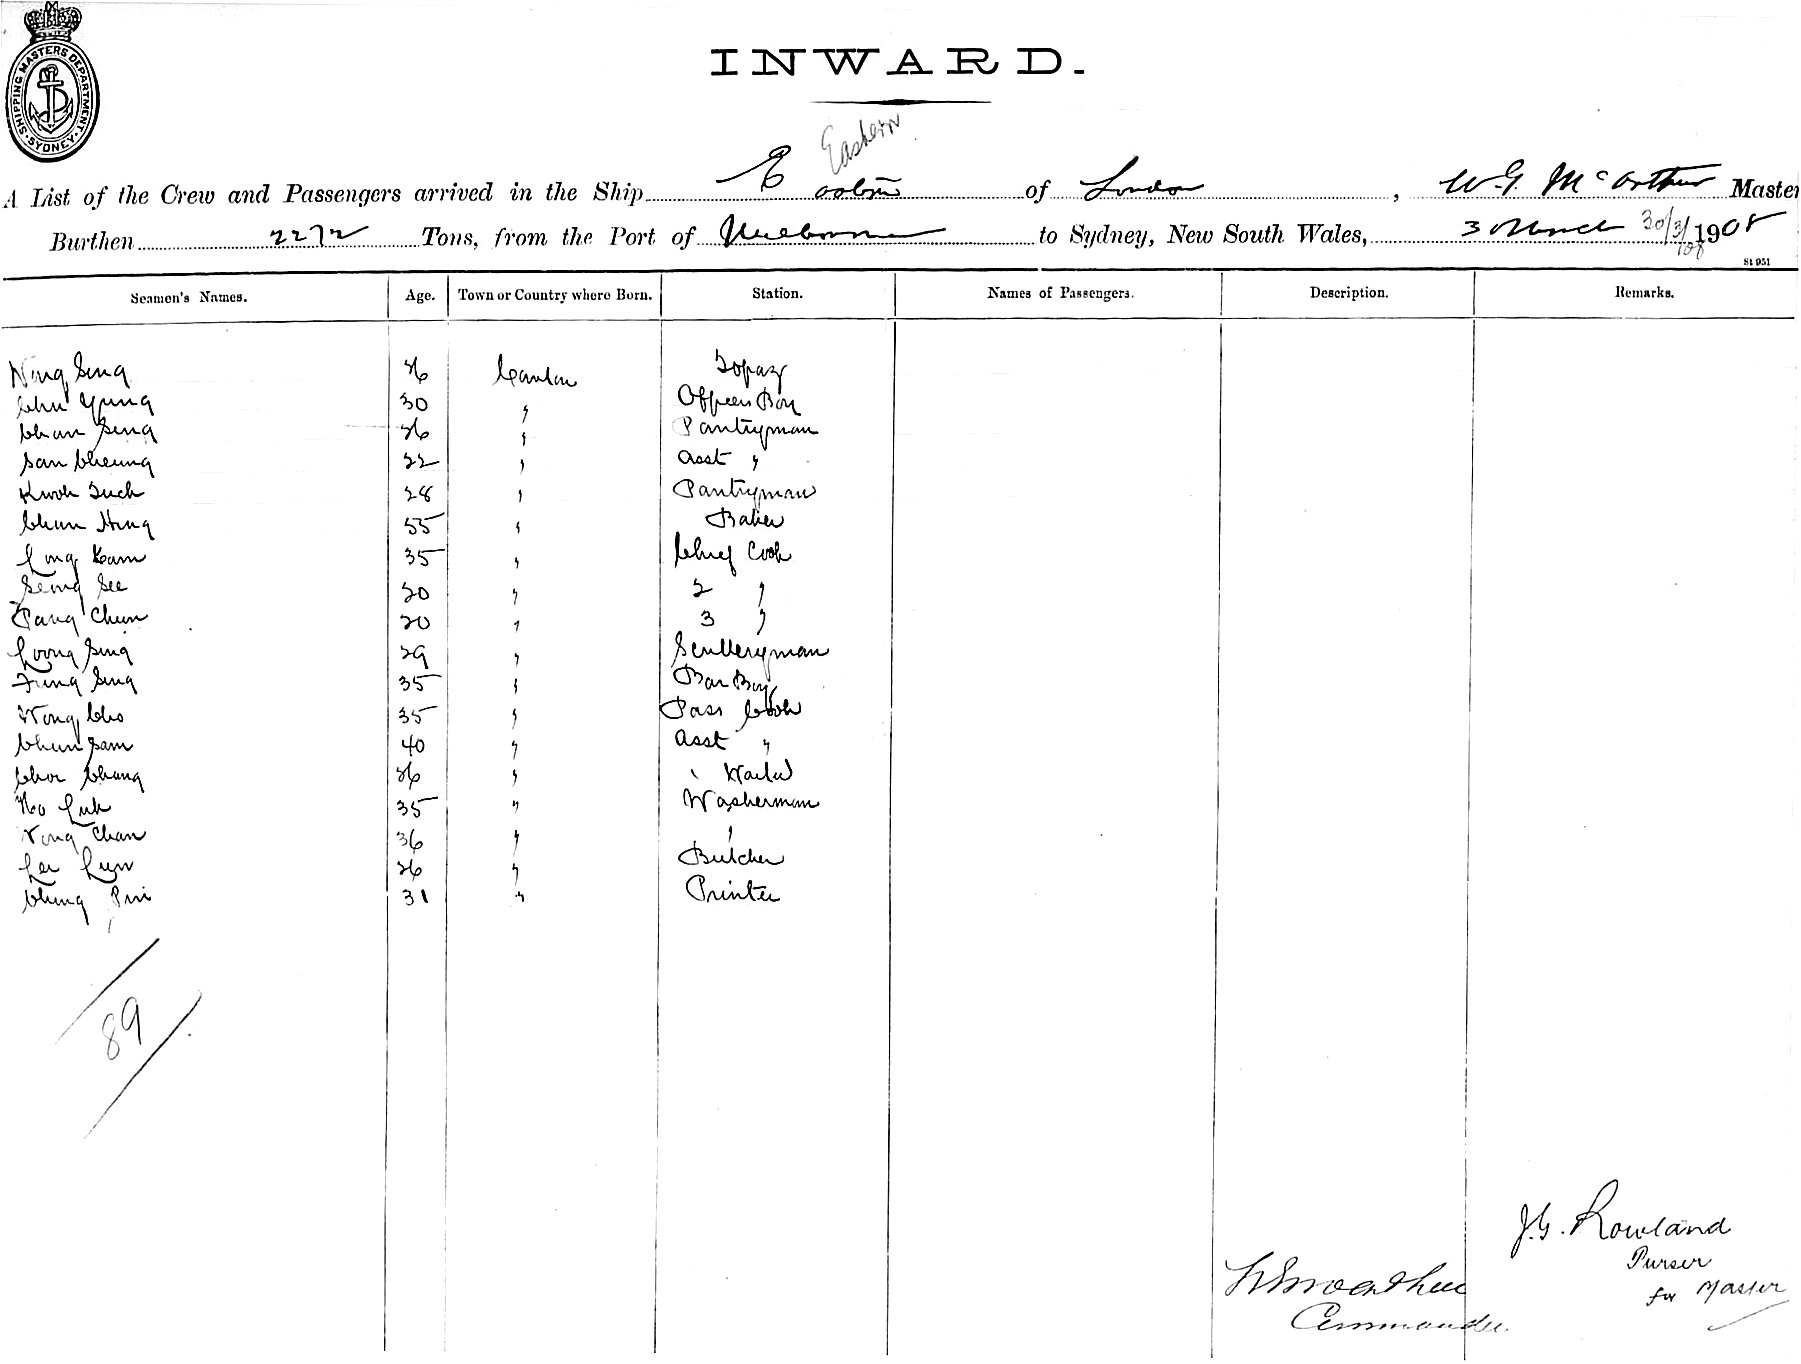 SHIPPING MASTERS DEPARTMENT. SYDNEY
INWARD.
Eastern
A List of the Crew and Passengers arrived in the Ship Eastern of London, W. G. McArthur Master
Burthen 2272 Tons, from the Port of Melbourne to Sydney, New South Wales, 30 March 30/3/08 1908
St 951
Seamen's Names. Age. Town or Country where Born. Station. Names of Passengers. Description. Remarks.
Wong Sing 36 Canton Topaz
Chu Yung 30 " Officers Boy
Chan Sing 26 " Pantryman
San Cheung 22 " Asst "
Kwok Tuck 28 " Pantryman
Chan Hing 55 " Baker
Long Kam 35 " Chief Cook
Seong See 20 " 2 "
Pang Chun 20 " 3 "
Loong Sing 29 " Sculleryman
Fung Sing 35 " Bar Boy
Wong Cho 35 " Pass Cook
Chun Sam 40 " Asst "
Choi Chang 26 " " Waiter
Ho Luk 35 " Washerman
Wong Chan 36 " "
Lee Lun 26 " Butcher
Chung Pui 31 " Printer
89
J. G. Rowland
Purser
for Master
W G McArthur
Commander.